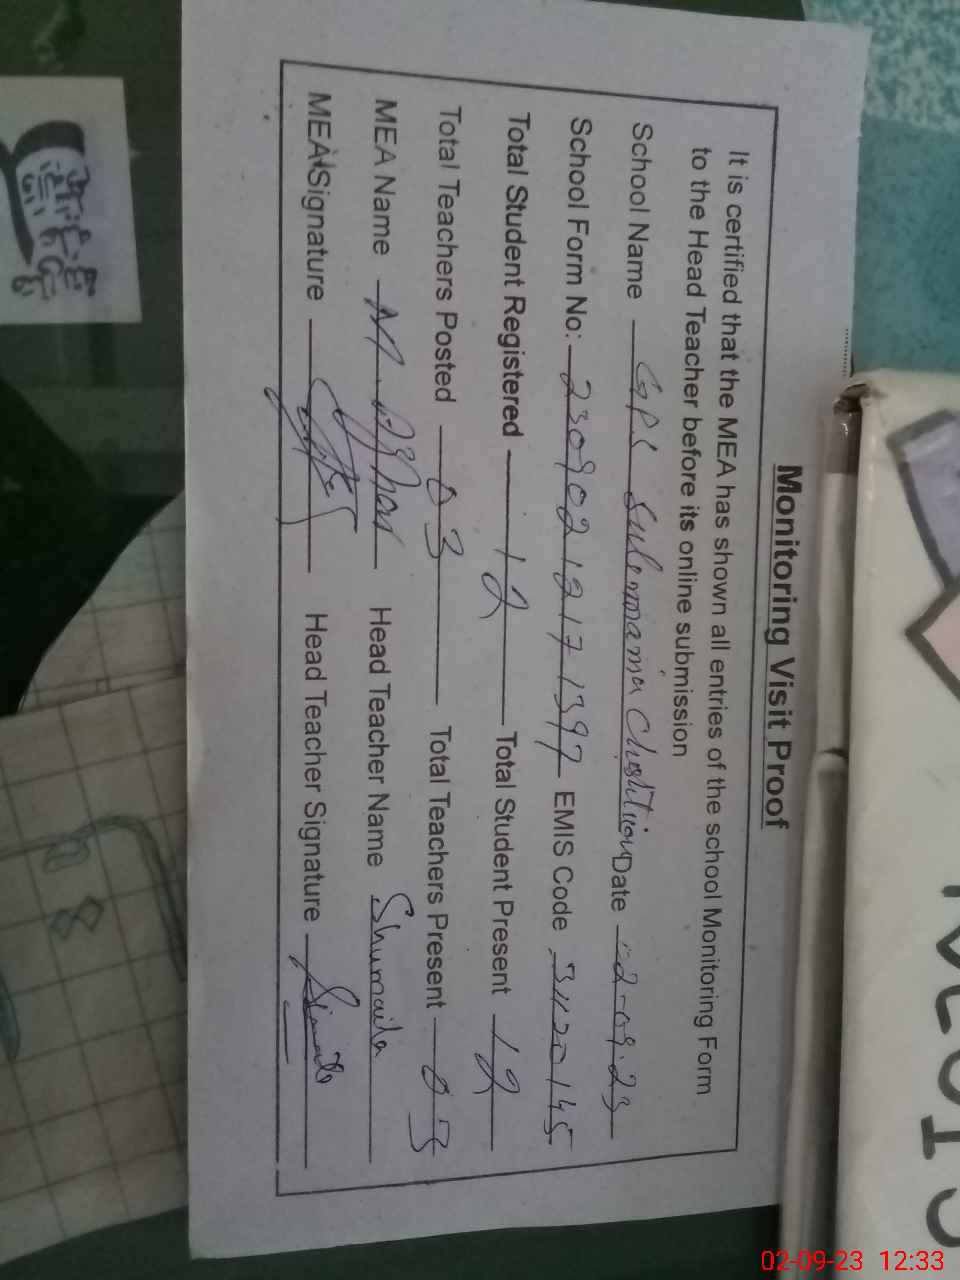 Monitoring Visit Proof
It is certified that the MEA has shown all entries of the school Monitoring Form
to the Head Teacher before its online submission
School Name GPS Sulemmania Date 2-09-23
School Form No: 2309021217 1397 EMIS Code 31120145
Total Student Registered 12 Total Student Present 12
Total Teachers Posted 03 Total Teachers Present 03
MEA Name M. Head Teacher Name Shumaila
MEA Signature Head Teacher Signature
02-09-23 12:33